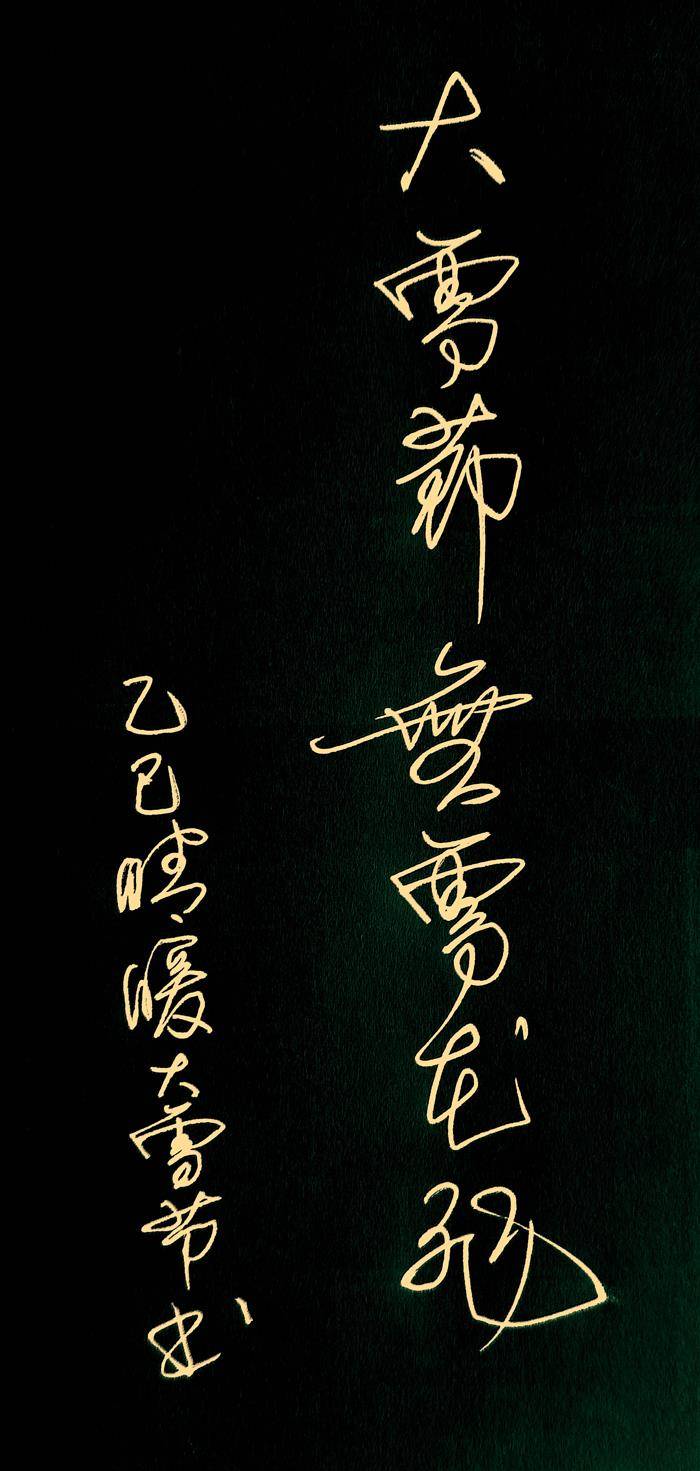 大雪節無雪
乙巳晴暖大雪节书